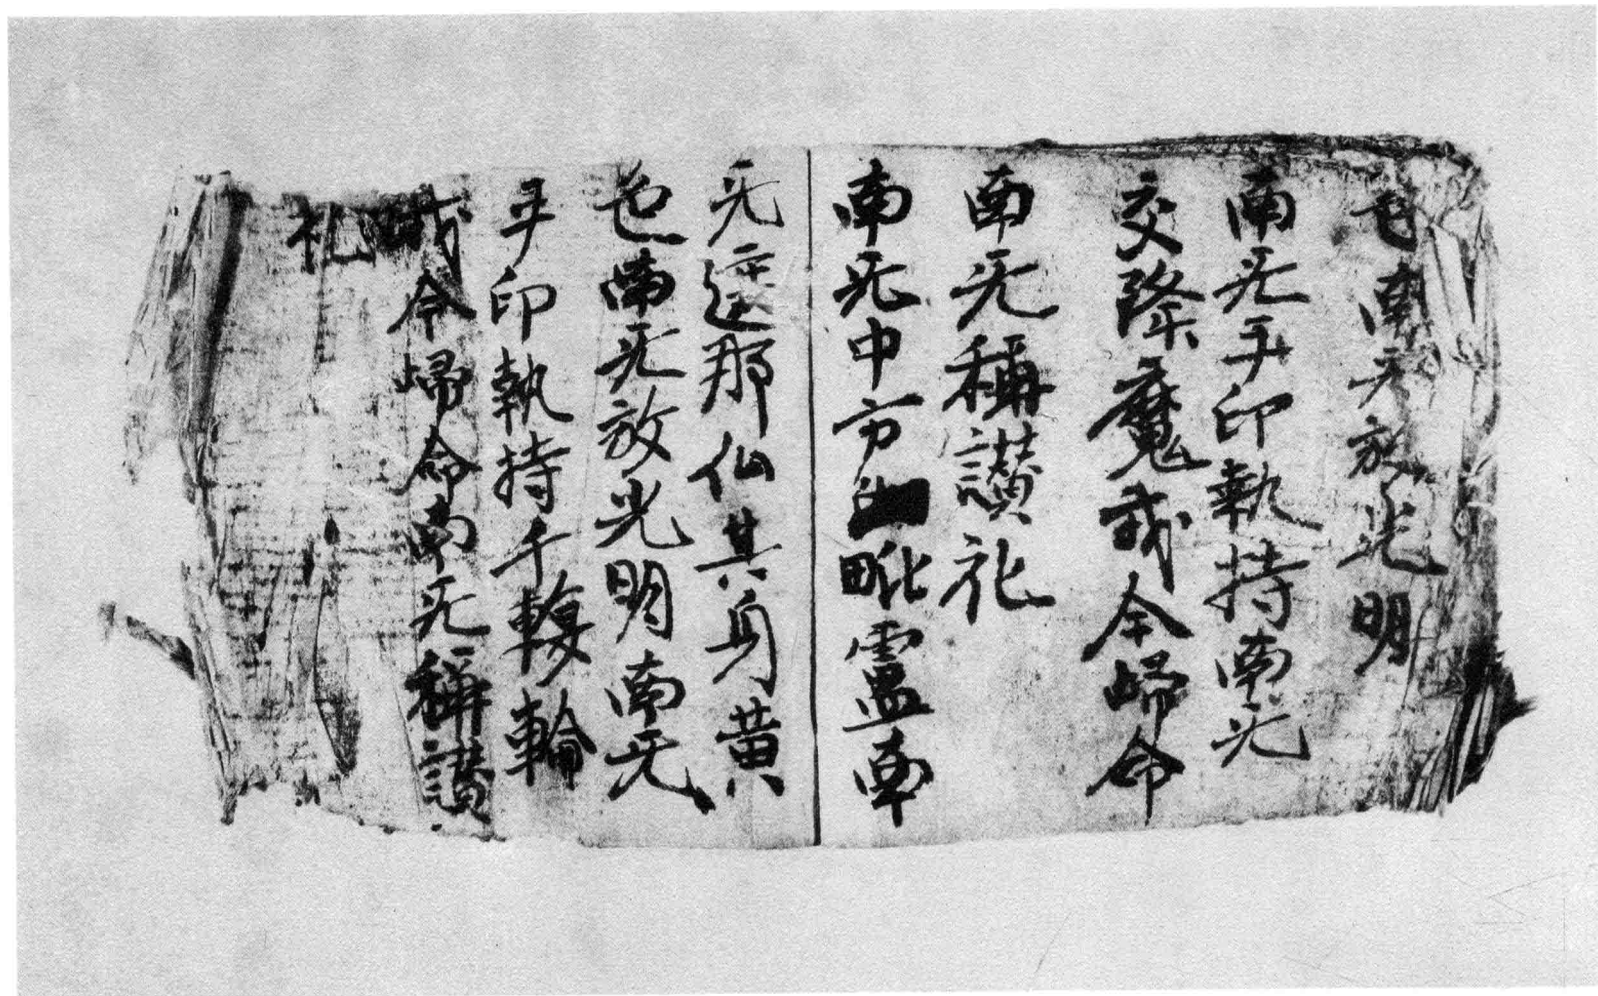 色南无放光明
南无手印執持南无
交降魔我今歸命
南无稱讃礼
南无中方毗盧南
无遮那仏其身黄
色南无放光明南无
手印執持千輻輪
我今歸命南无稱讃
礼